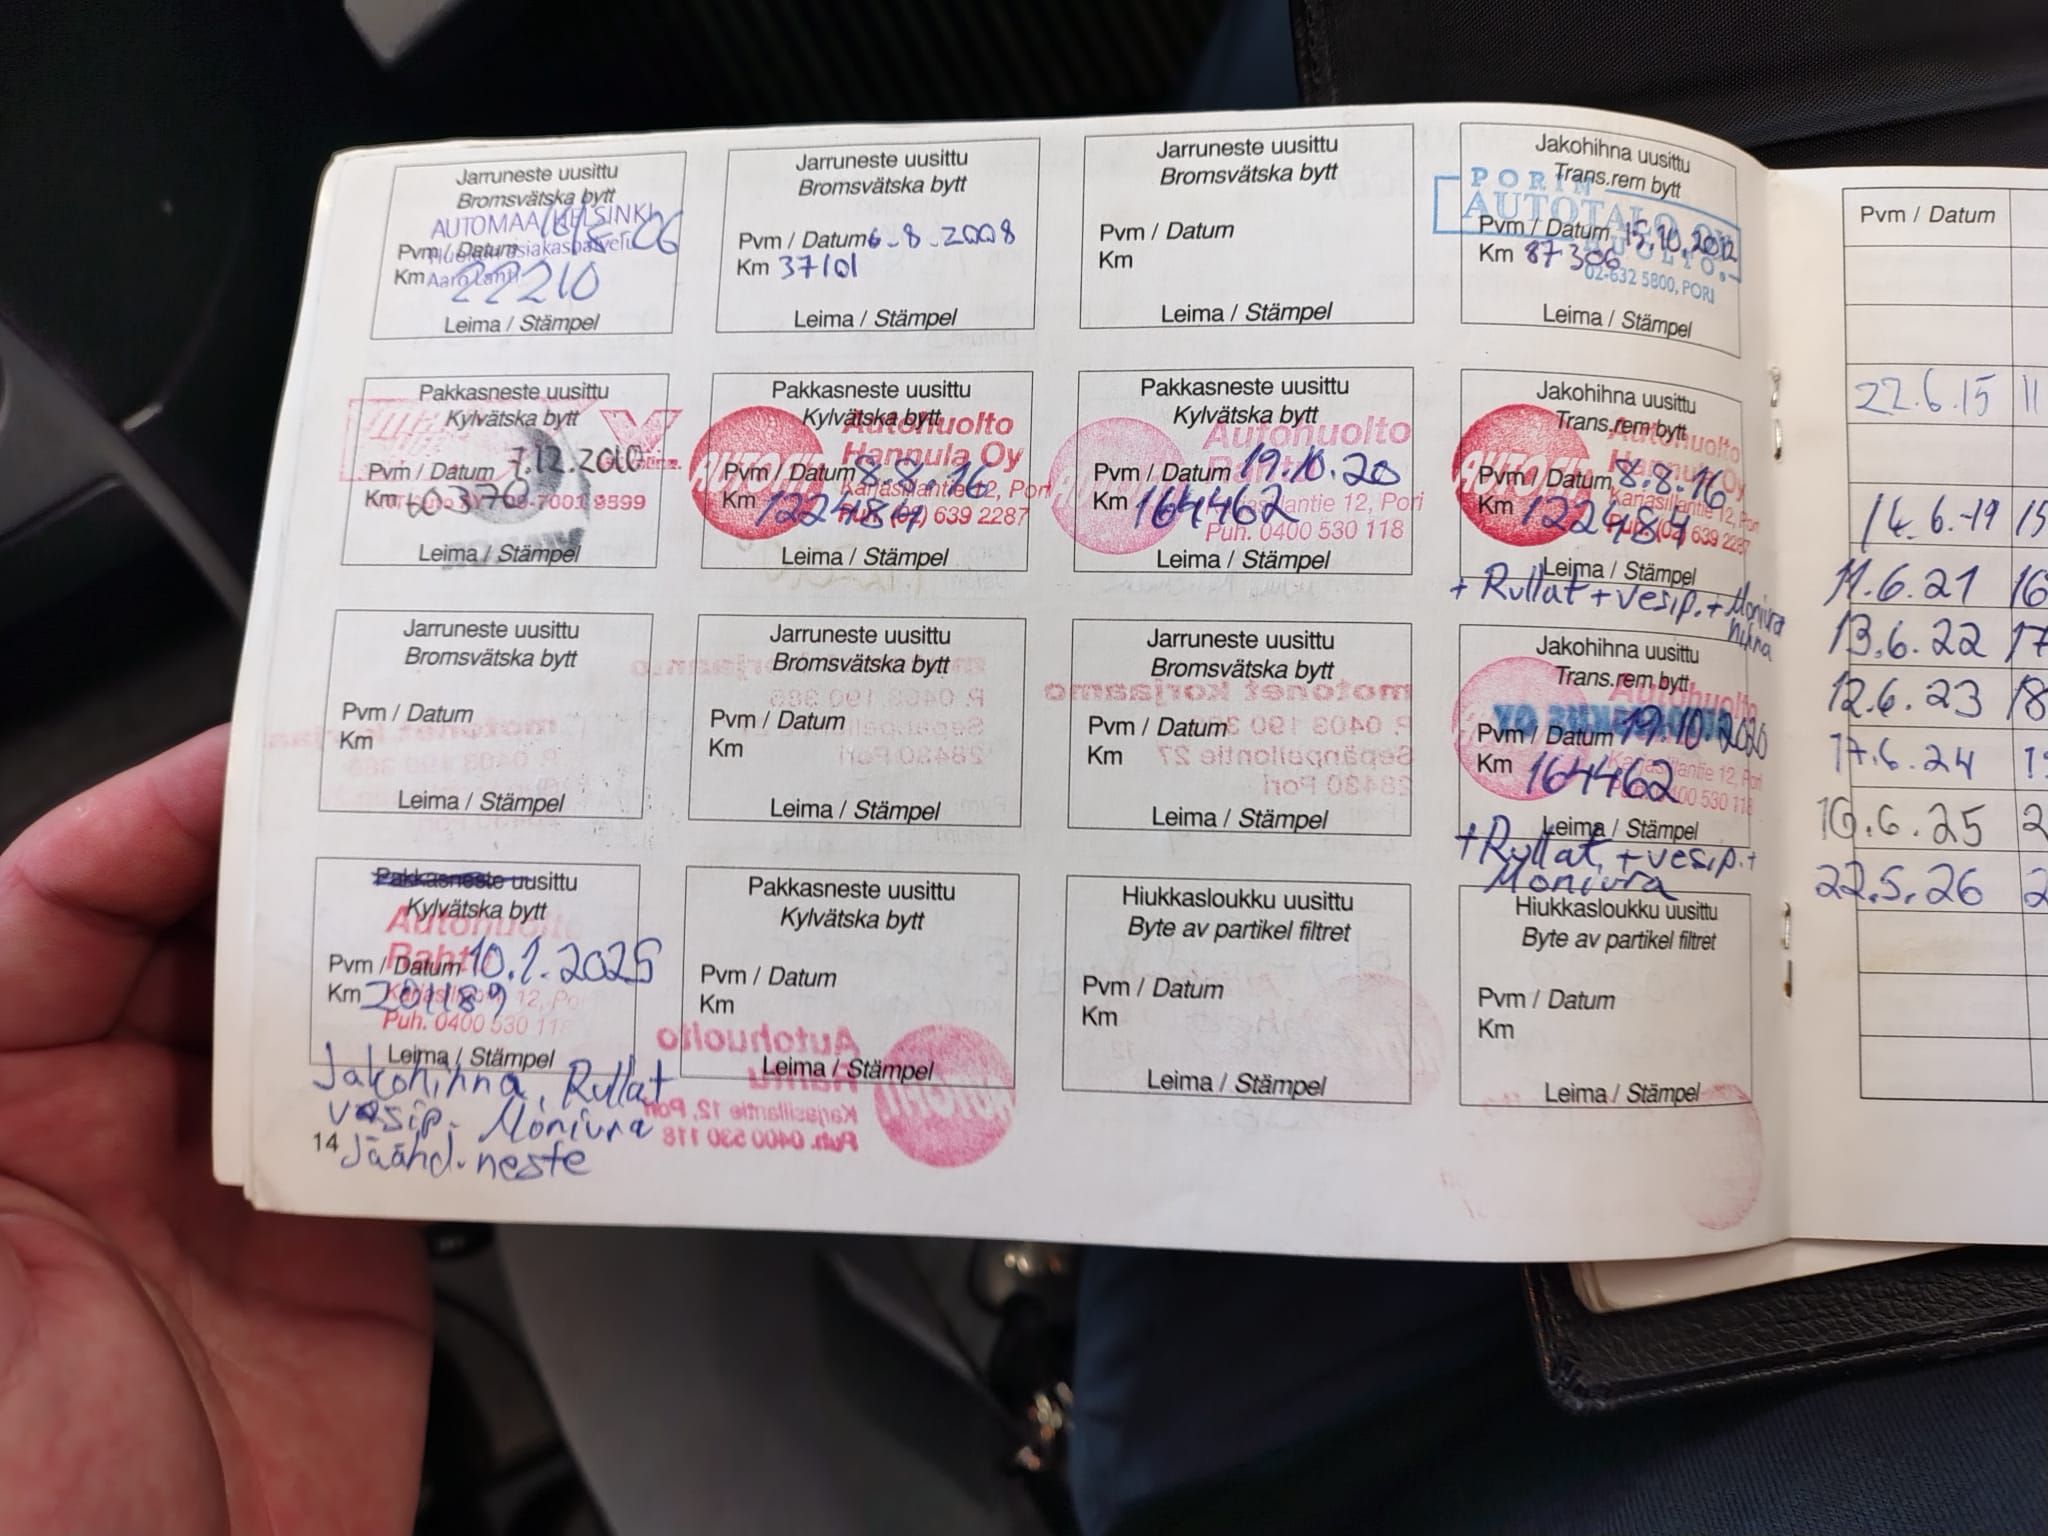 Jarruneste uusittu
Bromsvätska bytt
AUTOMAA HELSINKI
Pvm / Datum
Km 22210
Leima / Stämpel
Jarruneste uusittu
Bromsvätska bytt
Pvm / Datum 6.8.2008
Km 37101
Leima / Stämpel
Jarruneste uusittu
Bromsvätska bytt
Pvm / Datum
Km
Leima / Stämpel
Jakohihna uusittu
Trans.rem bytt
PORIN
AUTOTALO OY
HUOLTO.
Pvm / Datum 15.10.2012
Km 87306
02-632 5800, PORI
Leima / Stämpel
Pakkasneste uusittu
Kylvätska bytt
Pvm / Datum 7.12.2010
Km 60370
Leima / Stämpel
Pakkasneste uusittu
Kylvätska bytt
Autohuolto
Hannula Oy
Pvm / Datum 8.8.16
Karjasillantie 12, Pori
Km 122484
Puh. (02) 639 2287
Leima / Stämpel
Pakkasneste uusittu
Kylvätska bytt
Autohuolto
Pvm / Datum 19.10.20
Karjasillantie 12, Pori
Km 164462
Puh. 0400 530 118
Leima / Stämpel
Jakohihna uusittu
Trans.rem bytt
Autohuolto
Hannula Oy
Pvm / Datum 8.8.16
Karjasillantie 12, Pori
Km 122484
Puh. (02) 639 2287
Leima / Stämpel
+ Rullat + vesip. + Moniura
hihna
Jarruneste uusittu
Bromsvätska bytt
Pvm / Datum
Km
Leima / Stämpel
Jarruneste uusittu
Bromsvätska bytt
Pvm / Datum
Km
Leima / Stämpel
Jarruneste uusittu
Bromsvätska bytt
Pvm / Datum
Km
Leima / Stämpel
Jakohihna uusittu
Trans.rem bytt
Autohuolto
Pvm / Datum 19.10.2020
Karjasillantie 12, Pori
Km 164462
Puh. 0400 530 118
Leima / Stämpel
+ Rullat, + vesip. +
Moniura
Pakkasneste uusittu
Kylvätska bytt
Autohuolto
Rahtu
Pvm / Datum 10.1.2025
Karjasillantie 12, Pori
Km
Puh. 0400 530 118
Leima / Stämpel
Jakohihna, Rullat
vesip. Moniura
Jäähd.neste
Pakkasneste uusittu
Kylvätska bytt
Pvm / Datum
Km
Leima / Stämpel
Hiukkasloukku uusittu
Byte av partikel filtret
Pvm / Datum
Km
Leima / Stämpel
Hiukkasloukku uusittu
Byte av partikel filtret
Pvm / Datum
Km
Leima / Stämpel
14
Pvm / Datum
22.6.15 11
14.6.-19 15
11.6.21 16
13.6.22 17
12.6.23 18
17.6.24
16.6.25 2
22.5.26 2